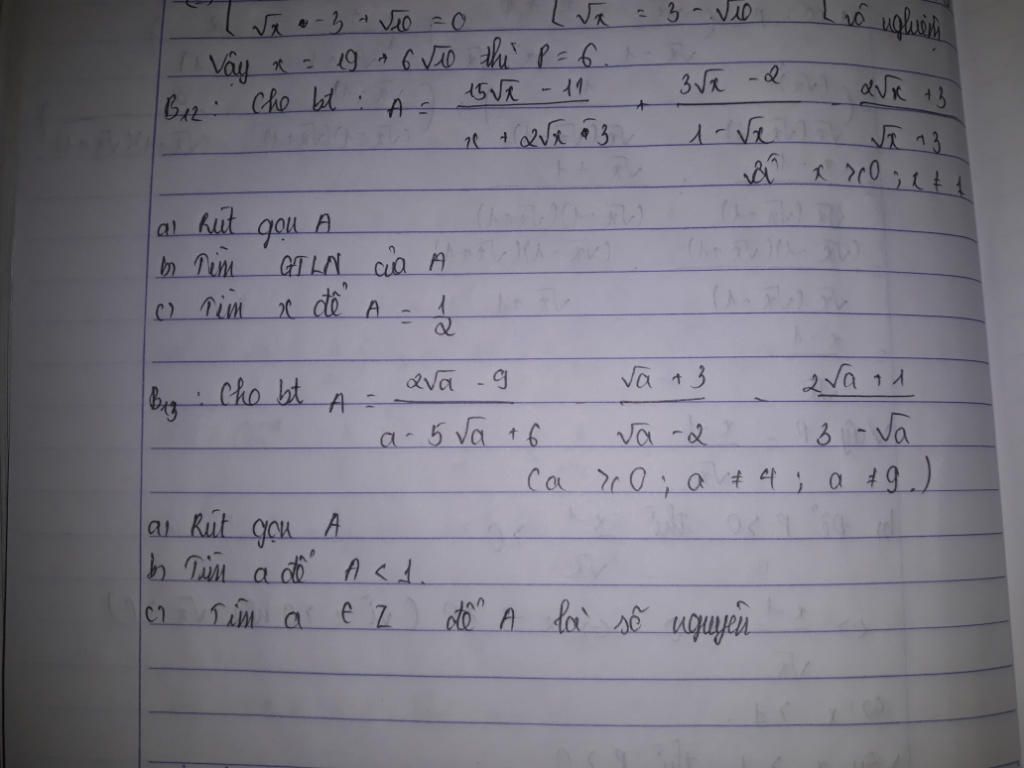 c) [ √x - 3 + √10 = 0 [ √x = 3 - √10 [ vô nghiệm
Vậy x = 19 + 6√10 thì P = 6.
B12: Cho bt: A = (15√x - 11)/(x + 2√x - 3) + (3√x - 2)/(1 - √x) - (2√x + 3)/(√x + 3)
x ≥ 0; x ≠ 1
a) Rút gọn A
b) Tìm GTLN của A
c) Tìm x để A = 1/2
B13: Cho bt A = (2√a - 9)/(a - 5√a + 6) - (√a + 3)/(√a - 2) - (2√a + 1)/(3 - √a)
(a ≥ 0; a ≠ 4; a ≠ 9.)
a) Rút gọn A
b) Tìm a để A < 1.
c) Tìm a ∈ Z để A là số nguyên